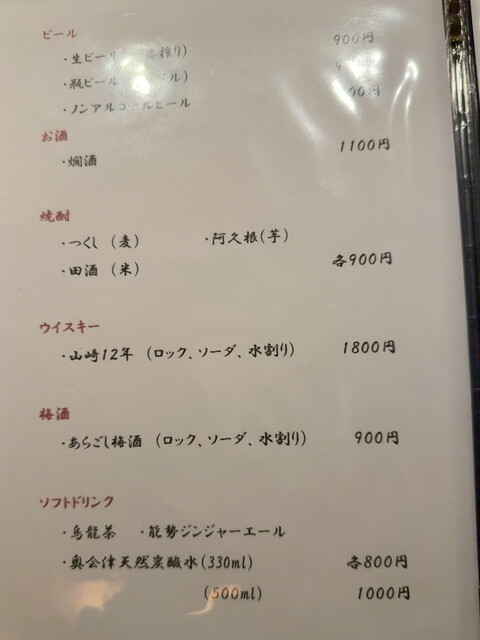 ビール
・生ビール 搾り) 900円
・瓶ビール
・ノンアルコールビール 00円
お酒
・燗酒 1100円
焼酎
・つくし（麦） ・阿久根(芋)
・田酒（米） 各900円
ウイスキー
・山崎12年（ロック、ソーダ、水割り） 1800円
梅酒
・あらごし梅酒（ロック、ソーダ、水割り） 900円
ソフトドリンク
・烏龍茶 ・能勢ジンジャーエール
・奥会津天然炭酸水(330ml) 各800円
(500ml) 1000円